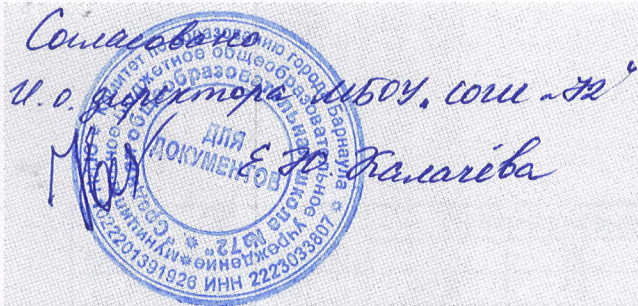 Согласовано
И.о. директора МБОУ „СОШ №72"
Е.Ю. Калачёва
комитет по образованию города Барнаула
муниципальное бюджетное общеобразовательное учреждение
"Средняя общеобразовательная школа №72"
1022201391926 ИНН 2223033807
ДЛЯ
ДОКУМЕНТОВ